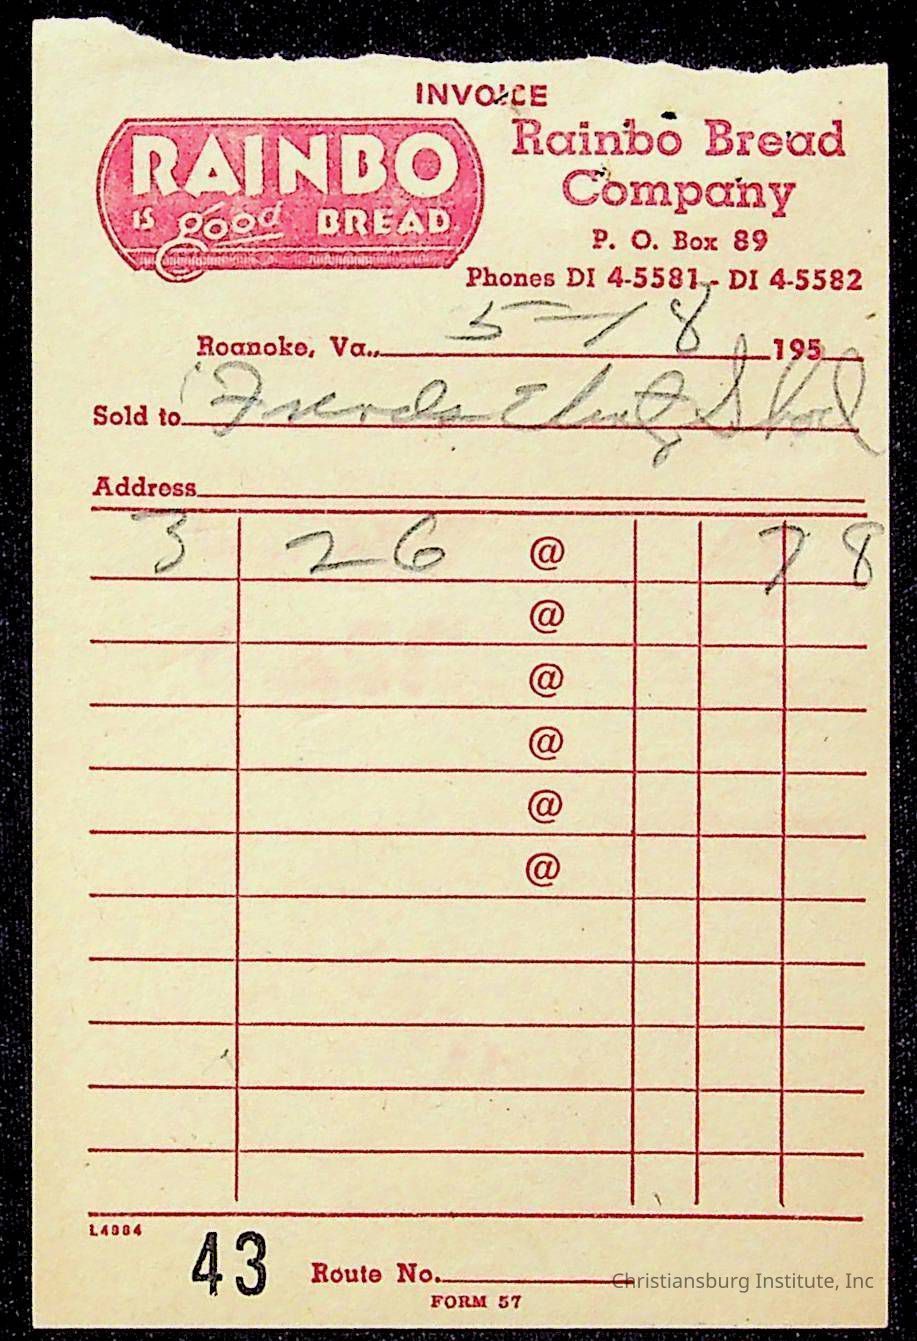 INVOICE
RAINBO
IS good BREAD
Rainbo Bread
Company
P. O. Box 89
Phones DI 4-5581 - DI 4-5582
Roanoke, Va., 5-18 195
Sold to Friends
Address
3 26 @ 78
@
@
@
@
@
L4884
43 Route No.
FORM 57
Christiansburg Institute, Inc